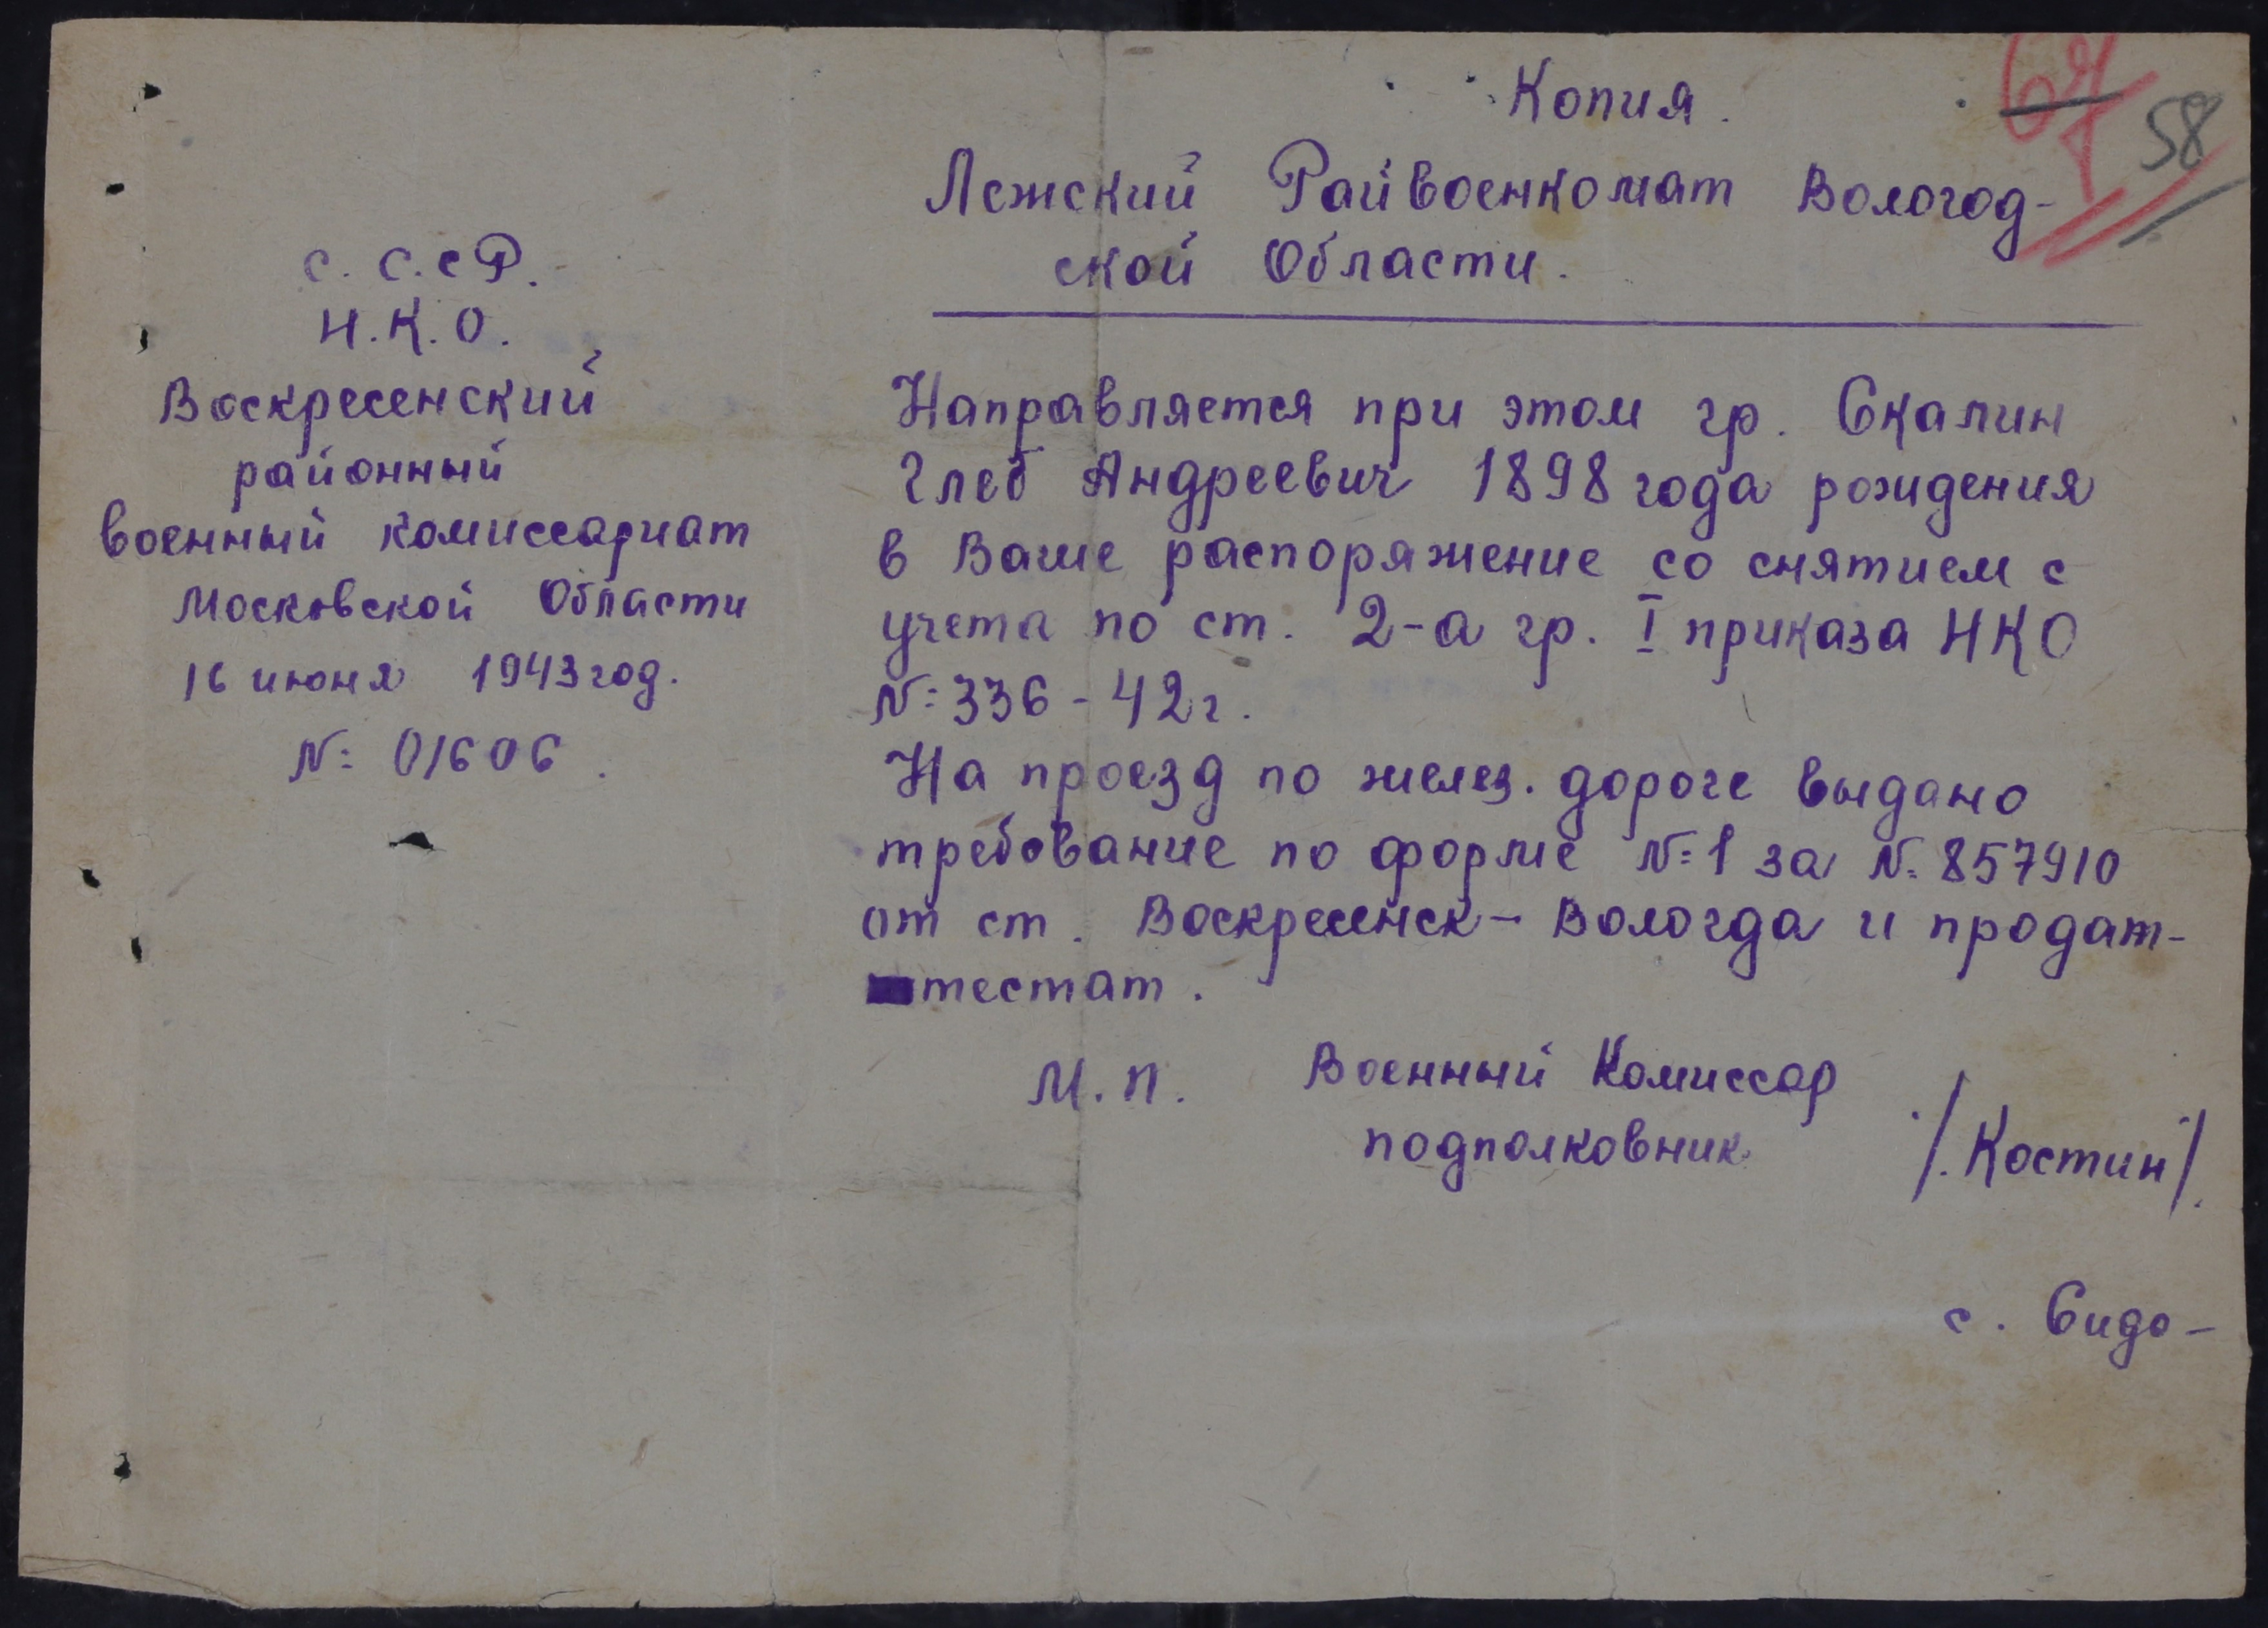 Копия.
67
58
Лежский Райвоенкомат Вологод-
ской Области.
С. С. С Р.
Н. К. О.
Воскресенский
районный
военный комиссариат
Московской Области
16 июня 1943 год.
№ 01606.
Направляется при этом гр. Скалин
Глеб Андреевич 1898 года рождения
в Ваше распоряжение со снятием с
учета по ст. 2-а гр. I приказа НКО
№ 336 - 42 г.
На проезд по желез. дороге выдано
требование по форме № 1 за № 857910
от ст. Воскресенск - Вологда и продат-
тестат.
М. П. Военный Комиссар
подполковник /. Костин /.
с. Сидо-